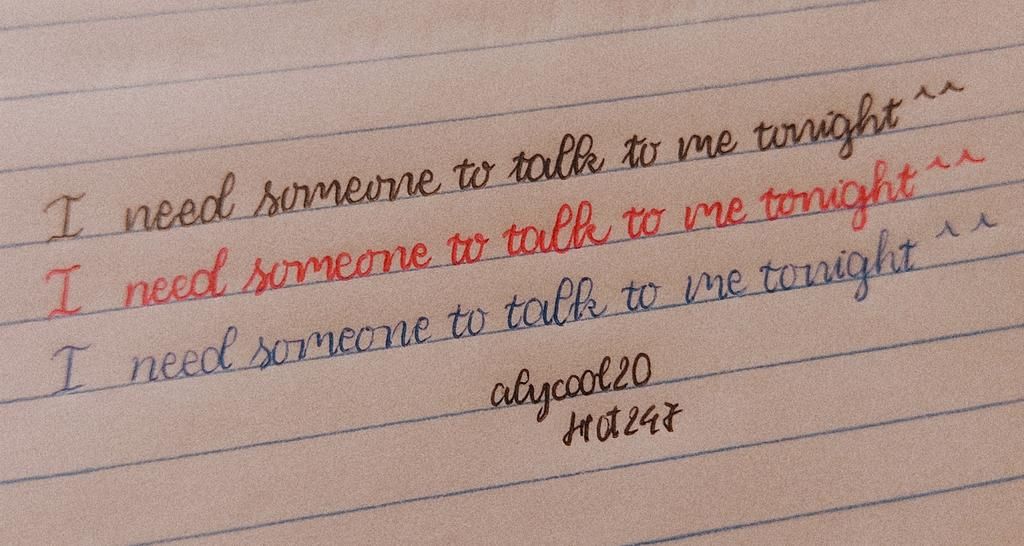 I need someone to talk to me tonight ^^
I need someone to talk to me tonight ^^
I need someone to talk to me tonight ^^
alycool20
Hot247